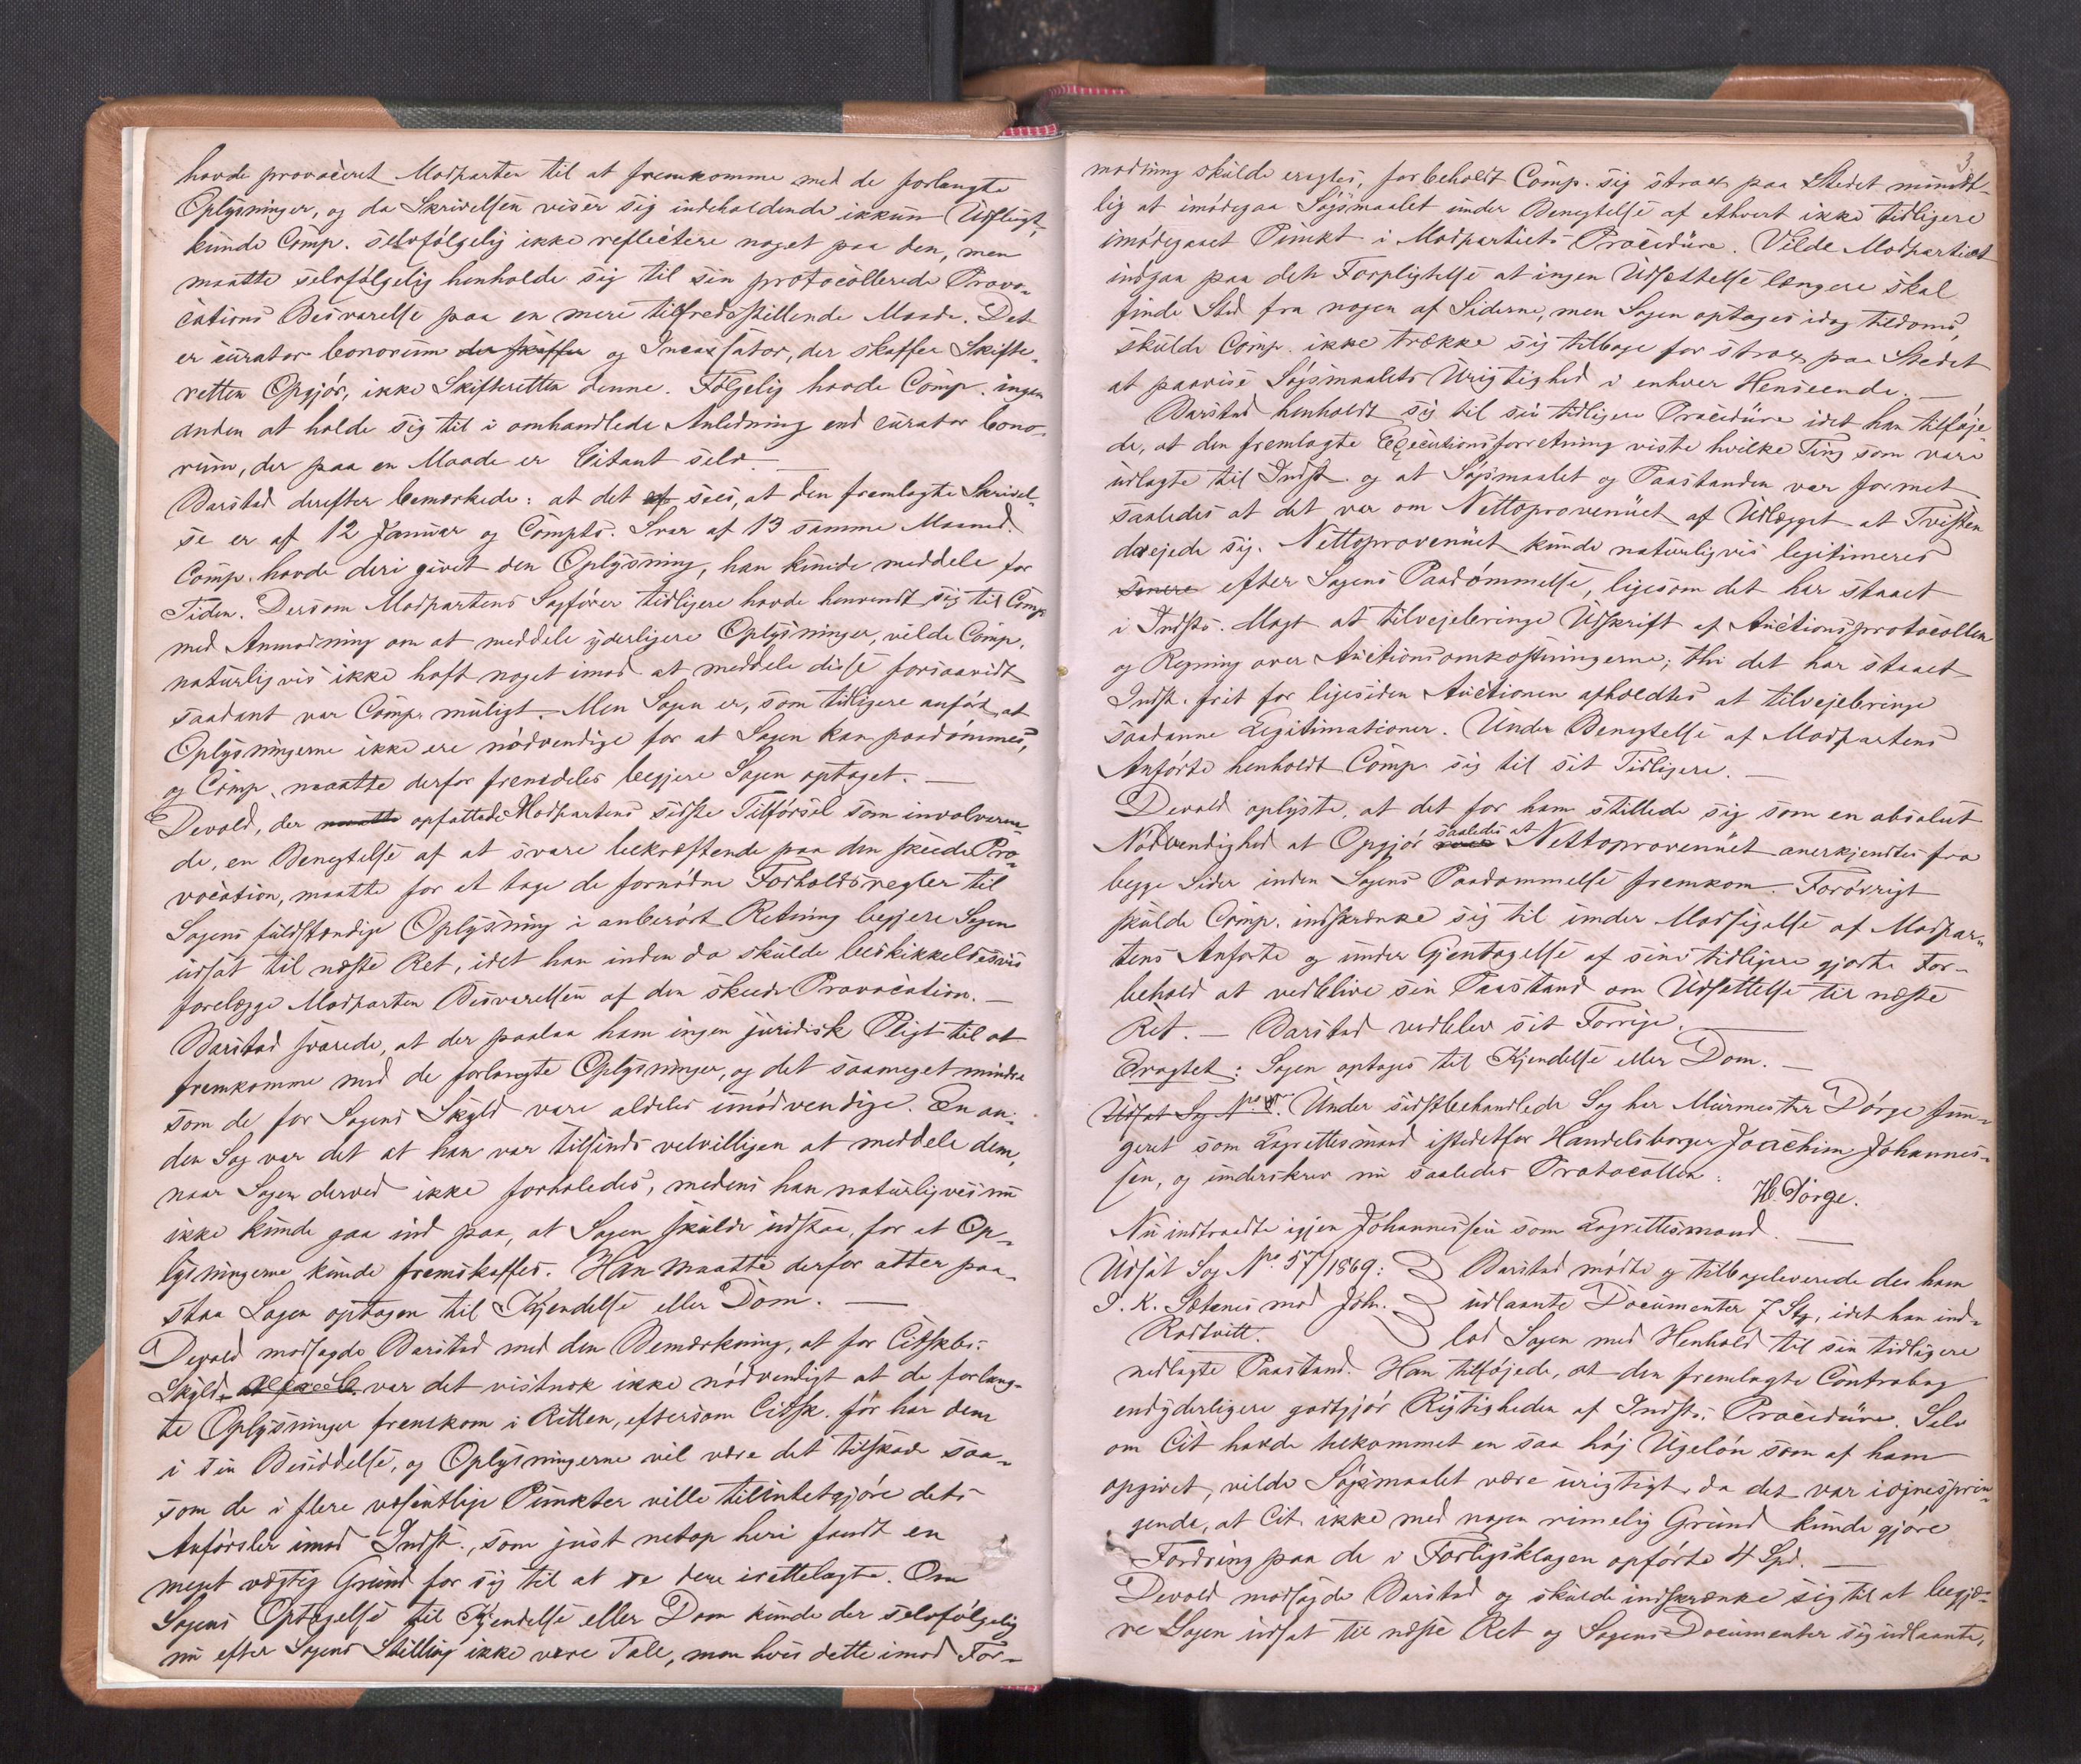 havde provoceret Modparten til at fremkomme med de forlangte
Oplysninger, og da Skrivelsen viser sig indeholdende ikkun Udflugt,
kunde Comp. selvfølgelig ikke reflectere noget paa den, men
maatte selvfølgelig henholde sig til sin protocollerede Provo-
cations Besvarelse paa en mere tilfredsstillende Maade. Det
er curator bonorum der skaffer og Incassator, der skaffer Skifte-
retten Opgjør, ikke Skifteretten denne. Følgelig havde Comp. ingen
anden at holde sig til i omhandlede Anledning end curator bono-
rum, der paa en Maade er Citant selv. —
Barstad derefter bemærkede: at det af sees, at den fremlagte Skrivel-
se er af 12 Januar og Compts. Svar af 13 samme Maaned.
Comp. havde deri givet den Oplysning, han kunde meddele for
Tiden. Dersom Modpartens Sagfører tidligere havde henvendt sig til Comp
med Anmodning om at meddele yderligere Oplysninger, vilde Comp.
naturligvis ikke haft noget imod at meddele disse forsaavidt
saadant var Comp. muligt. Men Sagen er, som tidligere anført, at
Oplysningerne ikke ere nødvendige for at Sagen kan paadømmes,
og Comp. maatte derfor fremdeles begjere Sagen optaget. —
Devold, der maatte opfattede Modpartens sidste Tilførsel som involveren-
de, en Benegtelse af at svare bekræftende paa den skeede Pro-
vocation, maatte for at tage de fornødne Forholdsregler til
Sagens fuldstændige Oplysning i anberørt Retning begjere Sagen
udsat til næste Ret, idet han inden da skulde beskikkelsesvis
forelægge Modparten Besvarelsen af den skeede Provocation. —
Barstad svarede, at der paalaa ham ingen juridisk Pligt til at
fremkomme med de forlangte Oplysninger, og det saameget mindre
som de for Sagens Skyld vare aldeles unødvendige. En an-
den Sag var det at han var tilsinds velvilligen at meddele dem,
naar Sagen derved ikke forhaledes, medens han naturligvis nu
ikke kunde gaa ind paa, at Sagen skulde udstaa, for at Op-
lysningerne kunde fremskaffes. Han maatte derfor atter paa-
staa Sagen optagen til Kjendelse eller Dom. —
Devold modsagde Barstad med den Bemærkning, at for Citskbs.
Skyld var det vistnok ikke nødvendigt at de forlang-
te Oplysninger fremkom i Retten, eftersom Citsk. før har dem
i sin Besiddelse, og Oplysningerne vil være det tilskade saa-
som de i flere væsentlige Punkter ville tilintetgjøre dets
Anførsler imod Indst., som just netop heri fandt en
meget vægtig Grund for sig til at se dem irettelagte. Om
Sagens Optagelse til Kjendelse eller Dom kunde der selvfølgelig
nu efter Sagens Stilling ikke være Tale, men hvis dette imod For-
3
modning skulde eragtes, forbeholdt Comp. sig strax paa Stedet mundt-
lig at imødegaa Søgsmaalet under Benegtelse af ethvert ikke tidligere
imødegaaet Punkt i Modpartiets Procedüre. Vilde Modpartiet
indgaa paa den Forpligtelse at ingen Udsættelse længere skal
finde Sted fra nogen af Siderne, men Sagen optages idag tildoms,
skulde Comp. ikke trække sig tilbage for strax paa Stedet
at paavise Søgsmaalets Urigtighed i enhver Henseende. —
Barstad henholdt sig til sin tidligere Procedüre idet han tilføje-
de, at den fremlagte Executionsforretning viste hvilke Ting som vare
udlagte til Indst. og at Søgsmaalet og Paastanden var formet
saaledes at det var om Nettoprovenüet af Udlægget at Tvisten
drejede sig. Nettoprovenüet kunde naturligvis legitimeres
senere efter Sagens Paadømmelse, ligesom det har staaet
i Indsts. Magt at tilvejebringe Udskrift af Auctionsprotocollen
og Regning over Auctionsomkostningerne; thi det har staaet
Indst. frit for ligesiden Auctionen afholdtes at tilvejebringe
saadanne Legitimationer. Under Benegtelse af Modpartens
Anførte henholdt Comp. sig til sit Tidligere. —
Devold oplyste, at det for ham stillede sig som en absolut
Nødvendighed at Opgjør over saaledes at Nettoprovenüet anerkjendtes fra
begge Sider inden Sagens Paadømmelse fremkom. Forøvrigt
skulde Comp. indskrænke sig til under Modsigelse af Modpar-
tens Anførte og under Gjentagelse af sine tidligere gjorte For-
behold at vedblive sin Paastand om Udsættelse til næste
Ret. — Barstad vedblev sit Forrige. —
Eragtet: Sagen optages til Kjendelse eller Dom. —
Udsat Sag No Under sidstbehandlede Sag har Murmester Dørge fun-
geret som Lagrettesmand istedetfor Handelsborger Joachim Johannes-
sen, og underskrev nu saaledes Protocollen:
H. Dørge.
Nu indtraadte igjen Johannessen som Lagrettesmand. —
Udsat Sag No 57/1869: Barstad mødte og tilbageleverede de ham
S. K. Sætenes mod Joh. udlaante Documenter 7 Stk, idet han ind-
Rodtvitt. lod Sagen med Henhold til sin tidligere
nedlagte Paastand. Han tilføjede, at den fremlagte Contrabog
endyderligere godtgjør Rigtigheden af Indsts. Procedüre. Selv
om Cit havde bekommet en saa høj Ugeløn som af ham
opgivet, vilde Søgsmaalet være urigtigt, da det var iøjnesprin-
gende, at Cit. ikke med nogen rimelig Grund kunde gjøre
Fordring paa de i Forligsklagen opførte 4 Spd. —
Devold modsagde Barstad og skulde indskrænke sig til at begjæ-
re Sagen udsat til næste Ret og Sagens Documenter sig udlaante,